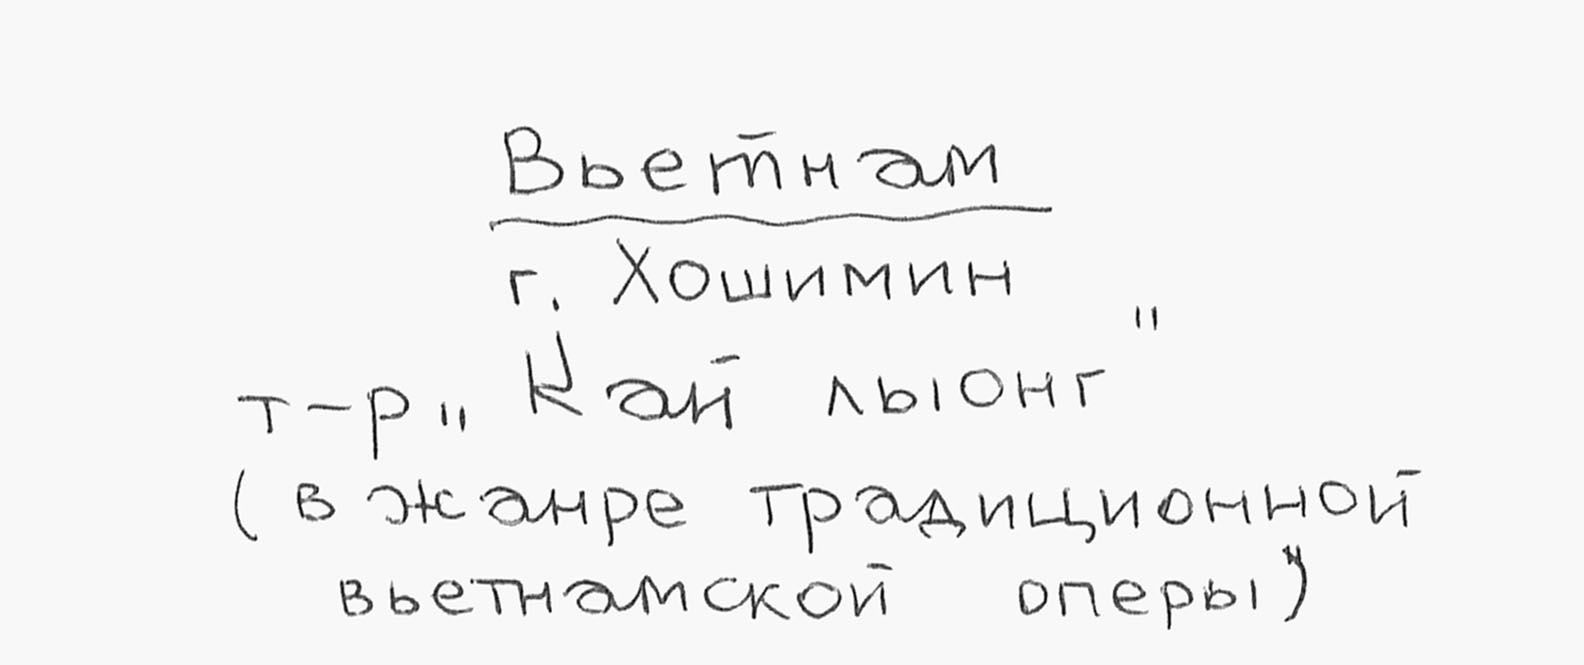 Вьетнам
г. Хошимин
т-р „Кай лыонг"
(в жанре традиционной
вьетнамской оперы)